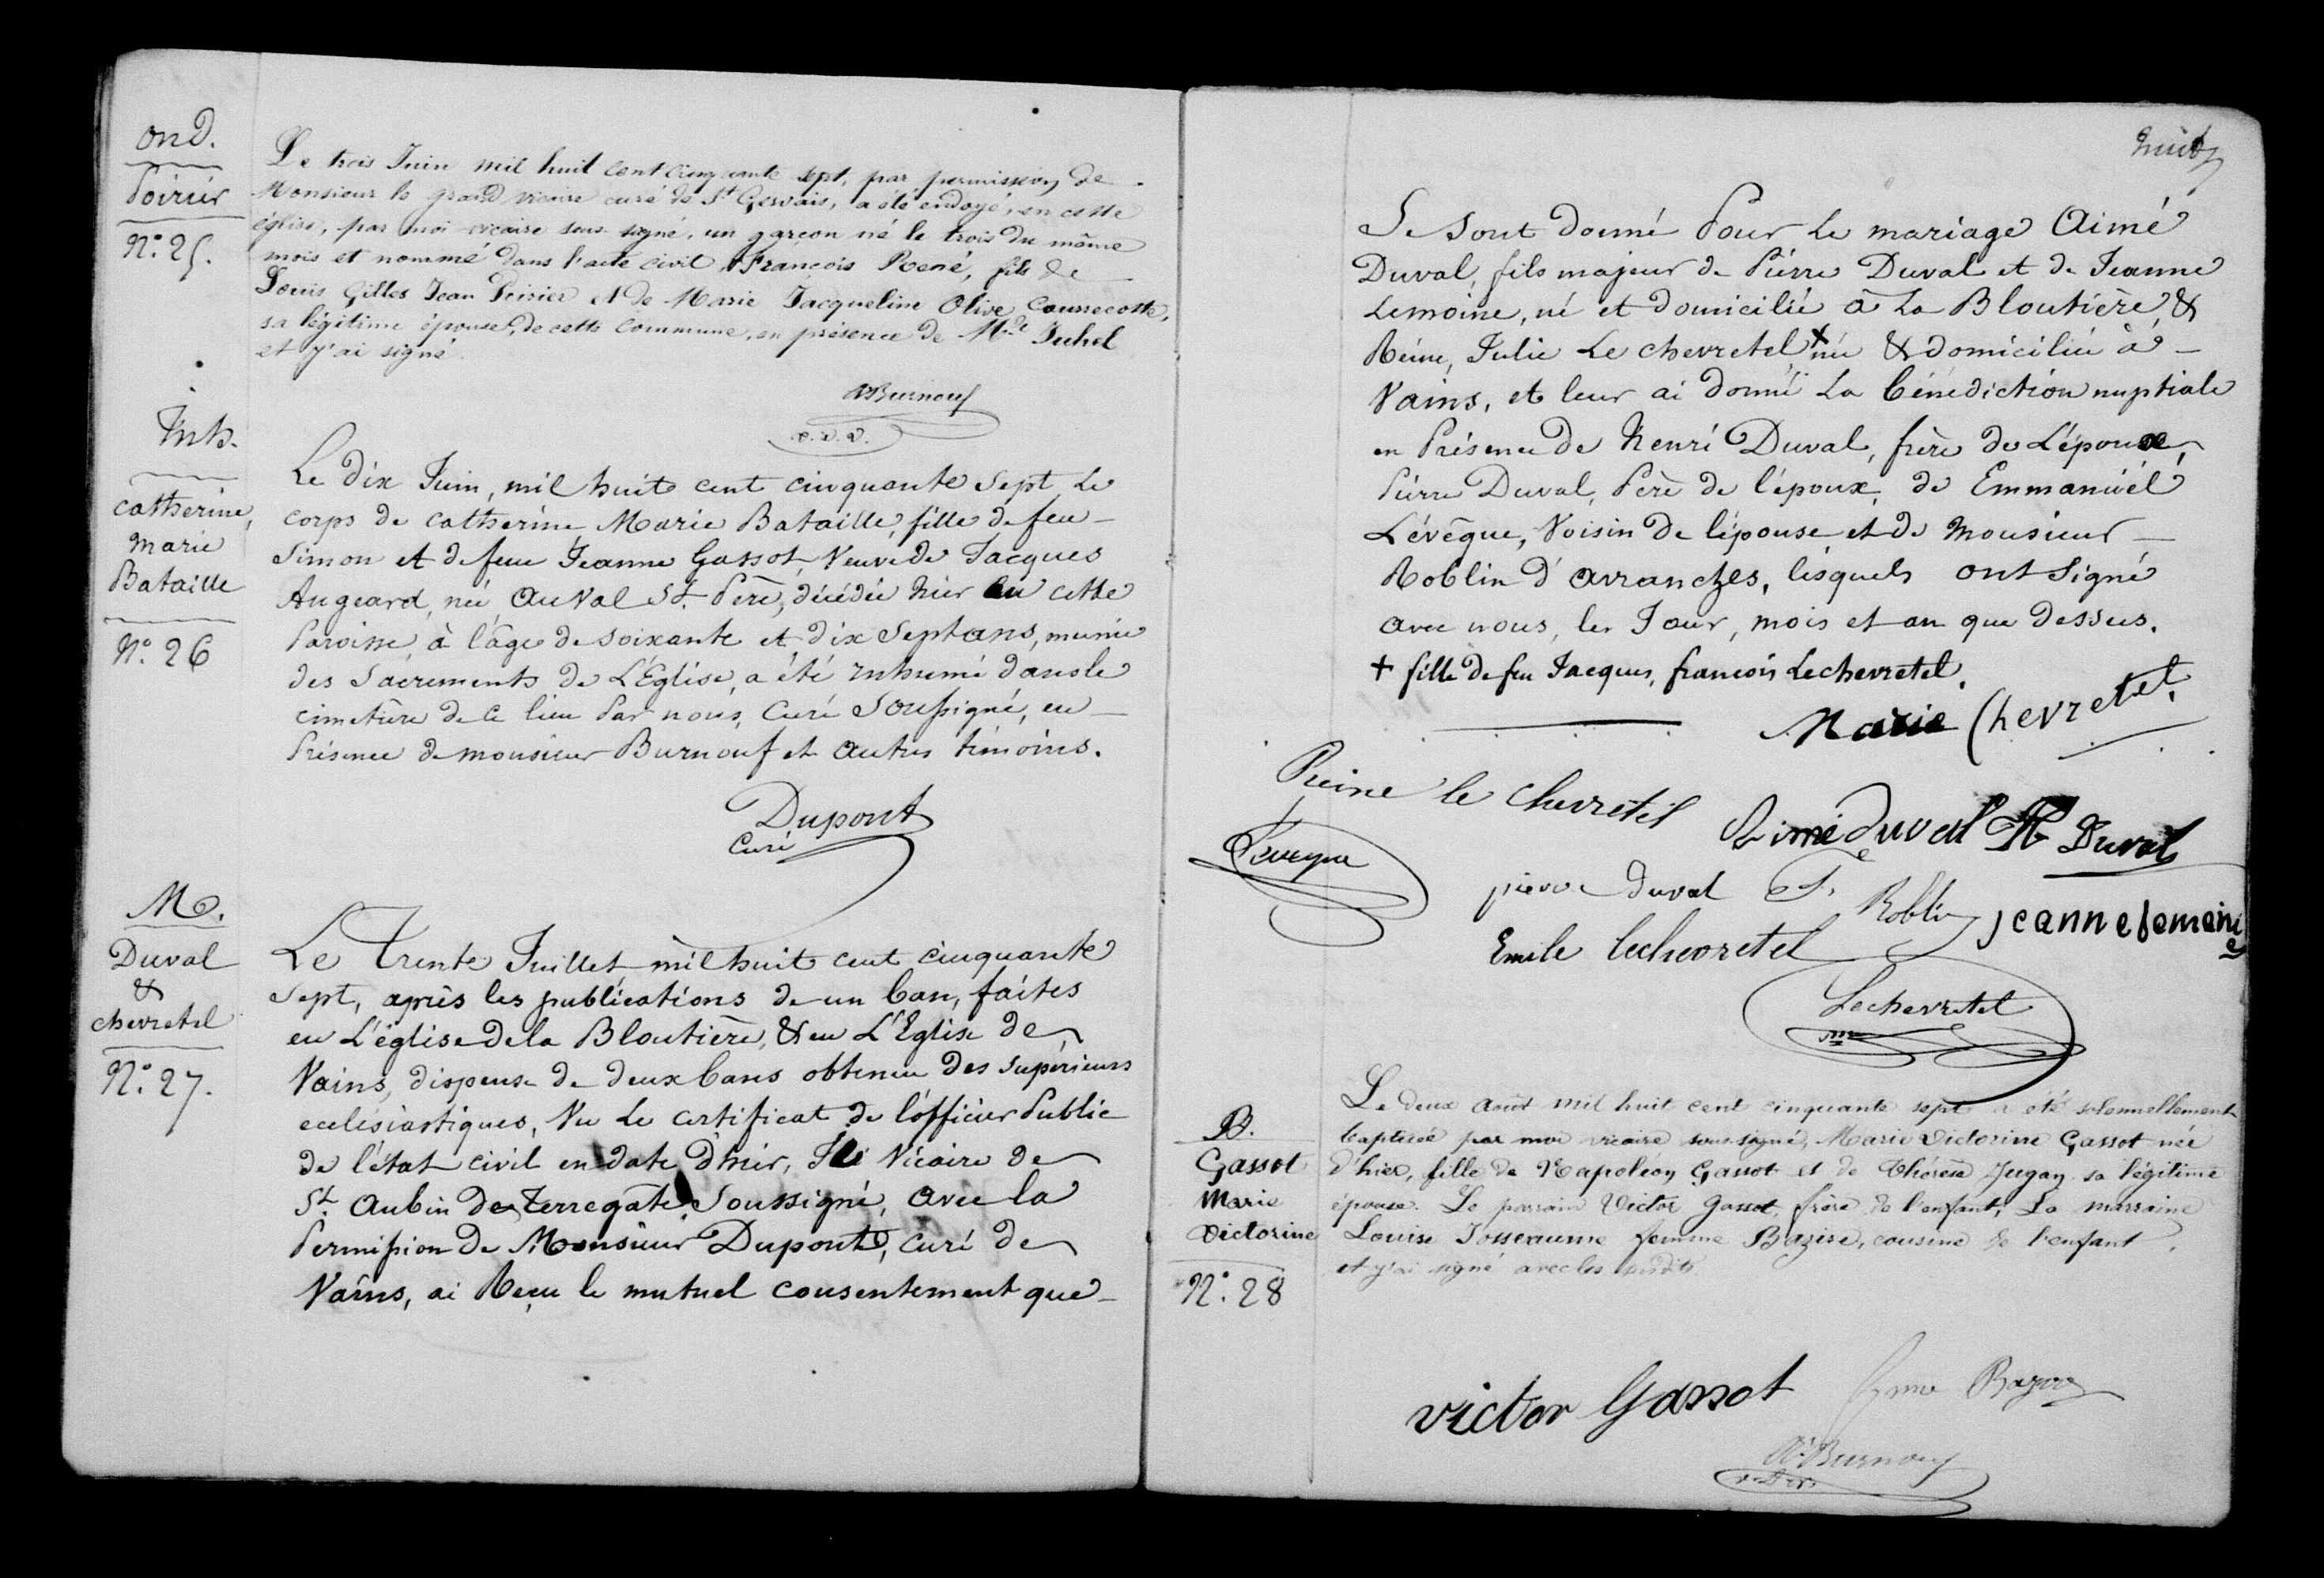 ond.
Poirier
N.° 25.
Le trois Juin mil huit cent cinquante sept, par permission de
Monsieur le grand vicaire curé de St Gervais, a été ondoyé, en cette
église, par moi vicaire sous-signé, un garçon né le trois du même
mois et nommé dans l'acte civil François René, fils de
Louis Gilles Jean Poirier et de Marie Jacqueline Olive Courrecotte,
sa légitime épouse, de cette Commune, en présence de Mde Juhel
et j'ai signé.
Burnouf
v. d. v.
Inh.
Catherine,
Marie
Bataille
N.° 26
Le dix Juin, mil huit cent cinquante Sept Le
corps de Catherine Marie Bataille, fille de feu
Simon et de feue Jeanne Gassot, Veuve de Jacques
Angeard, née au Val St. Père, décédée hier en cette
Paroisse, à l'âge de soixante et dix Sept ans, munie
des Sacrements de L'Eglise, a été inhumé dans le
cimetière de ce lieu Par nous, Curé Soussigné, en
Présence de monsieur Burnouf et autres témoins.
Dupont
Curé
M.
Duval
&
chevretel
N.° 27.
Le Trente Juillet mil huit cent cinquante
Sept, après les publications de un ban, faites
en L'église de la Bloutière, & en L'Eglise de
Vains, dispense de deux bans obtenue des Supérieurs
eclésiastiques, Vu Le certificat de l'officier Public
de l'état civil en date d'hier, Je Vicaire de
St. Aubin de terregate Soussigné, avec la
Permission de Monsieur Dupont, curé de
Vains, ai Reçu le mutuel consentement que
huit
Se sont donné Pour le mariage Aimé
Duval, fils majeur de Pierre Duval et de Jeanne
Lemoine, né et domicilié à La Bloutière, &
Reine, Julie Le chevretel + née & domiciliée à
Vains, et leur ai donné La bénédiction nuptiale
en Présence de Henri Duval, frère de L'époux,
Pierre Duval, Père de l'époux, de Emmanuël
Lévêque, Voisin de l'épouse et de Monsieur
Roblin d'avranches, lesquels ont Signé
avec nous, les Jour, mois et an que dessus.
+ fille de feu Jacques, françois Lechevretel.
Marie Chevretel.
Reine le chevretel
Aimé duval
Duval
Leveque
pierre duval
Roblin
jeanne lemoine
Emile lechevretel
Lechevretel
B.
Gassot
Marie
Victorine
N.° 28
Le deux Août mil huit cent cinquante sept a été solennellement
baptisée par moi vicaire sous-signé, Marie Victorine Gassot née
d'hier, fille de Napoléon Gassot et de Thérèse Jugan sa légitime
épouse. Le parrain Victor Gassot, frère de l'enfant, La marraine
Louise Josseaume femme Bazire, cousine de l'enfant,
et j'ai signé avec les susdits.
victor Gassot
femme Bazire
Burnouf